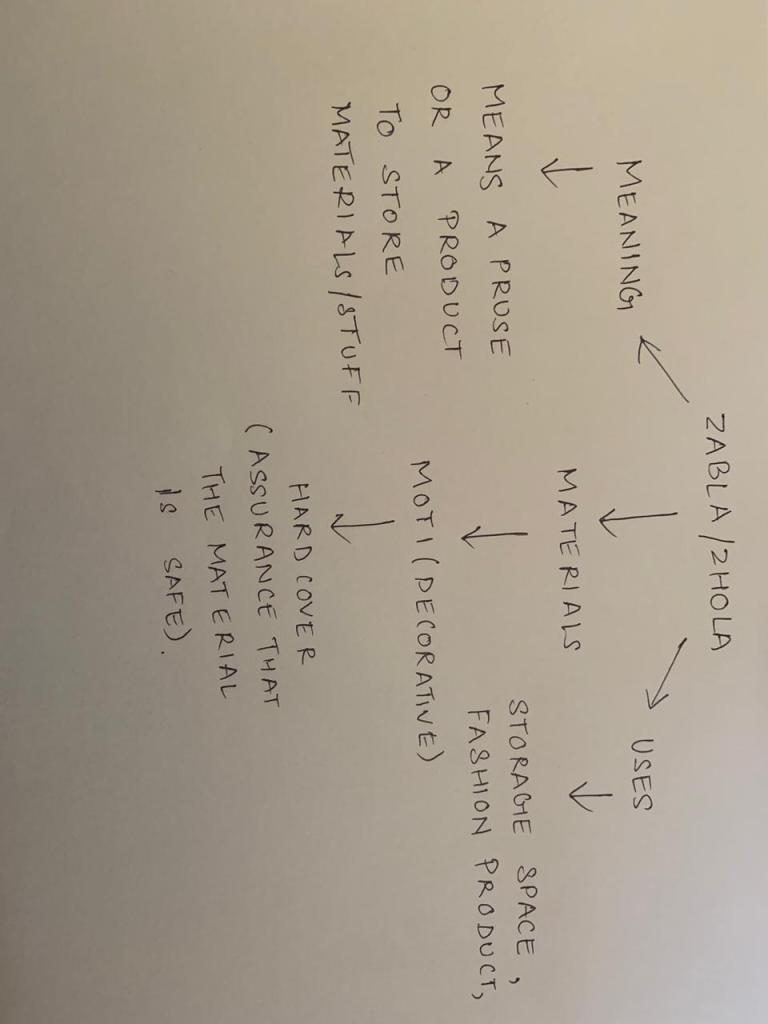 ZABLA/ZHOLA
MEANING
MEANS A PRUSE
OR A PRODUCT
TO STORE
MATERIALS/STUFF
MATERIALS
MOTI (DECORATIVE)
HARD COVER
(ASSURANCE THAT
THE MATERIAL
IS SAFE).
USES
STORAGE SPACE,
FASHION PRODUCT,